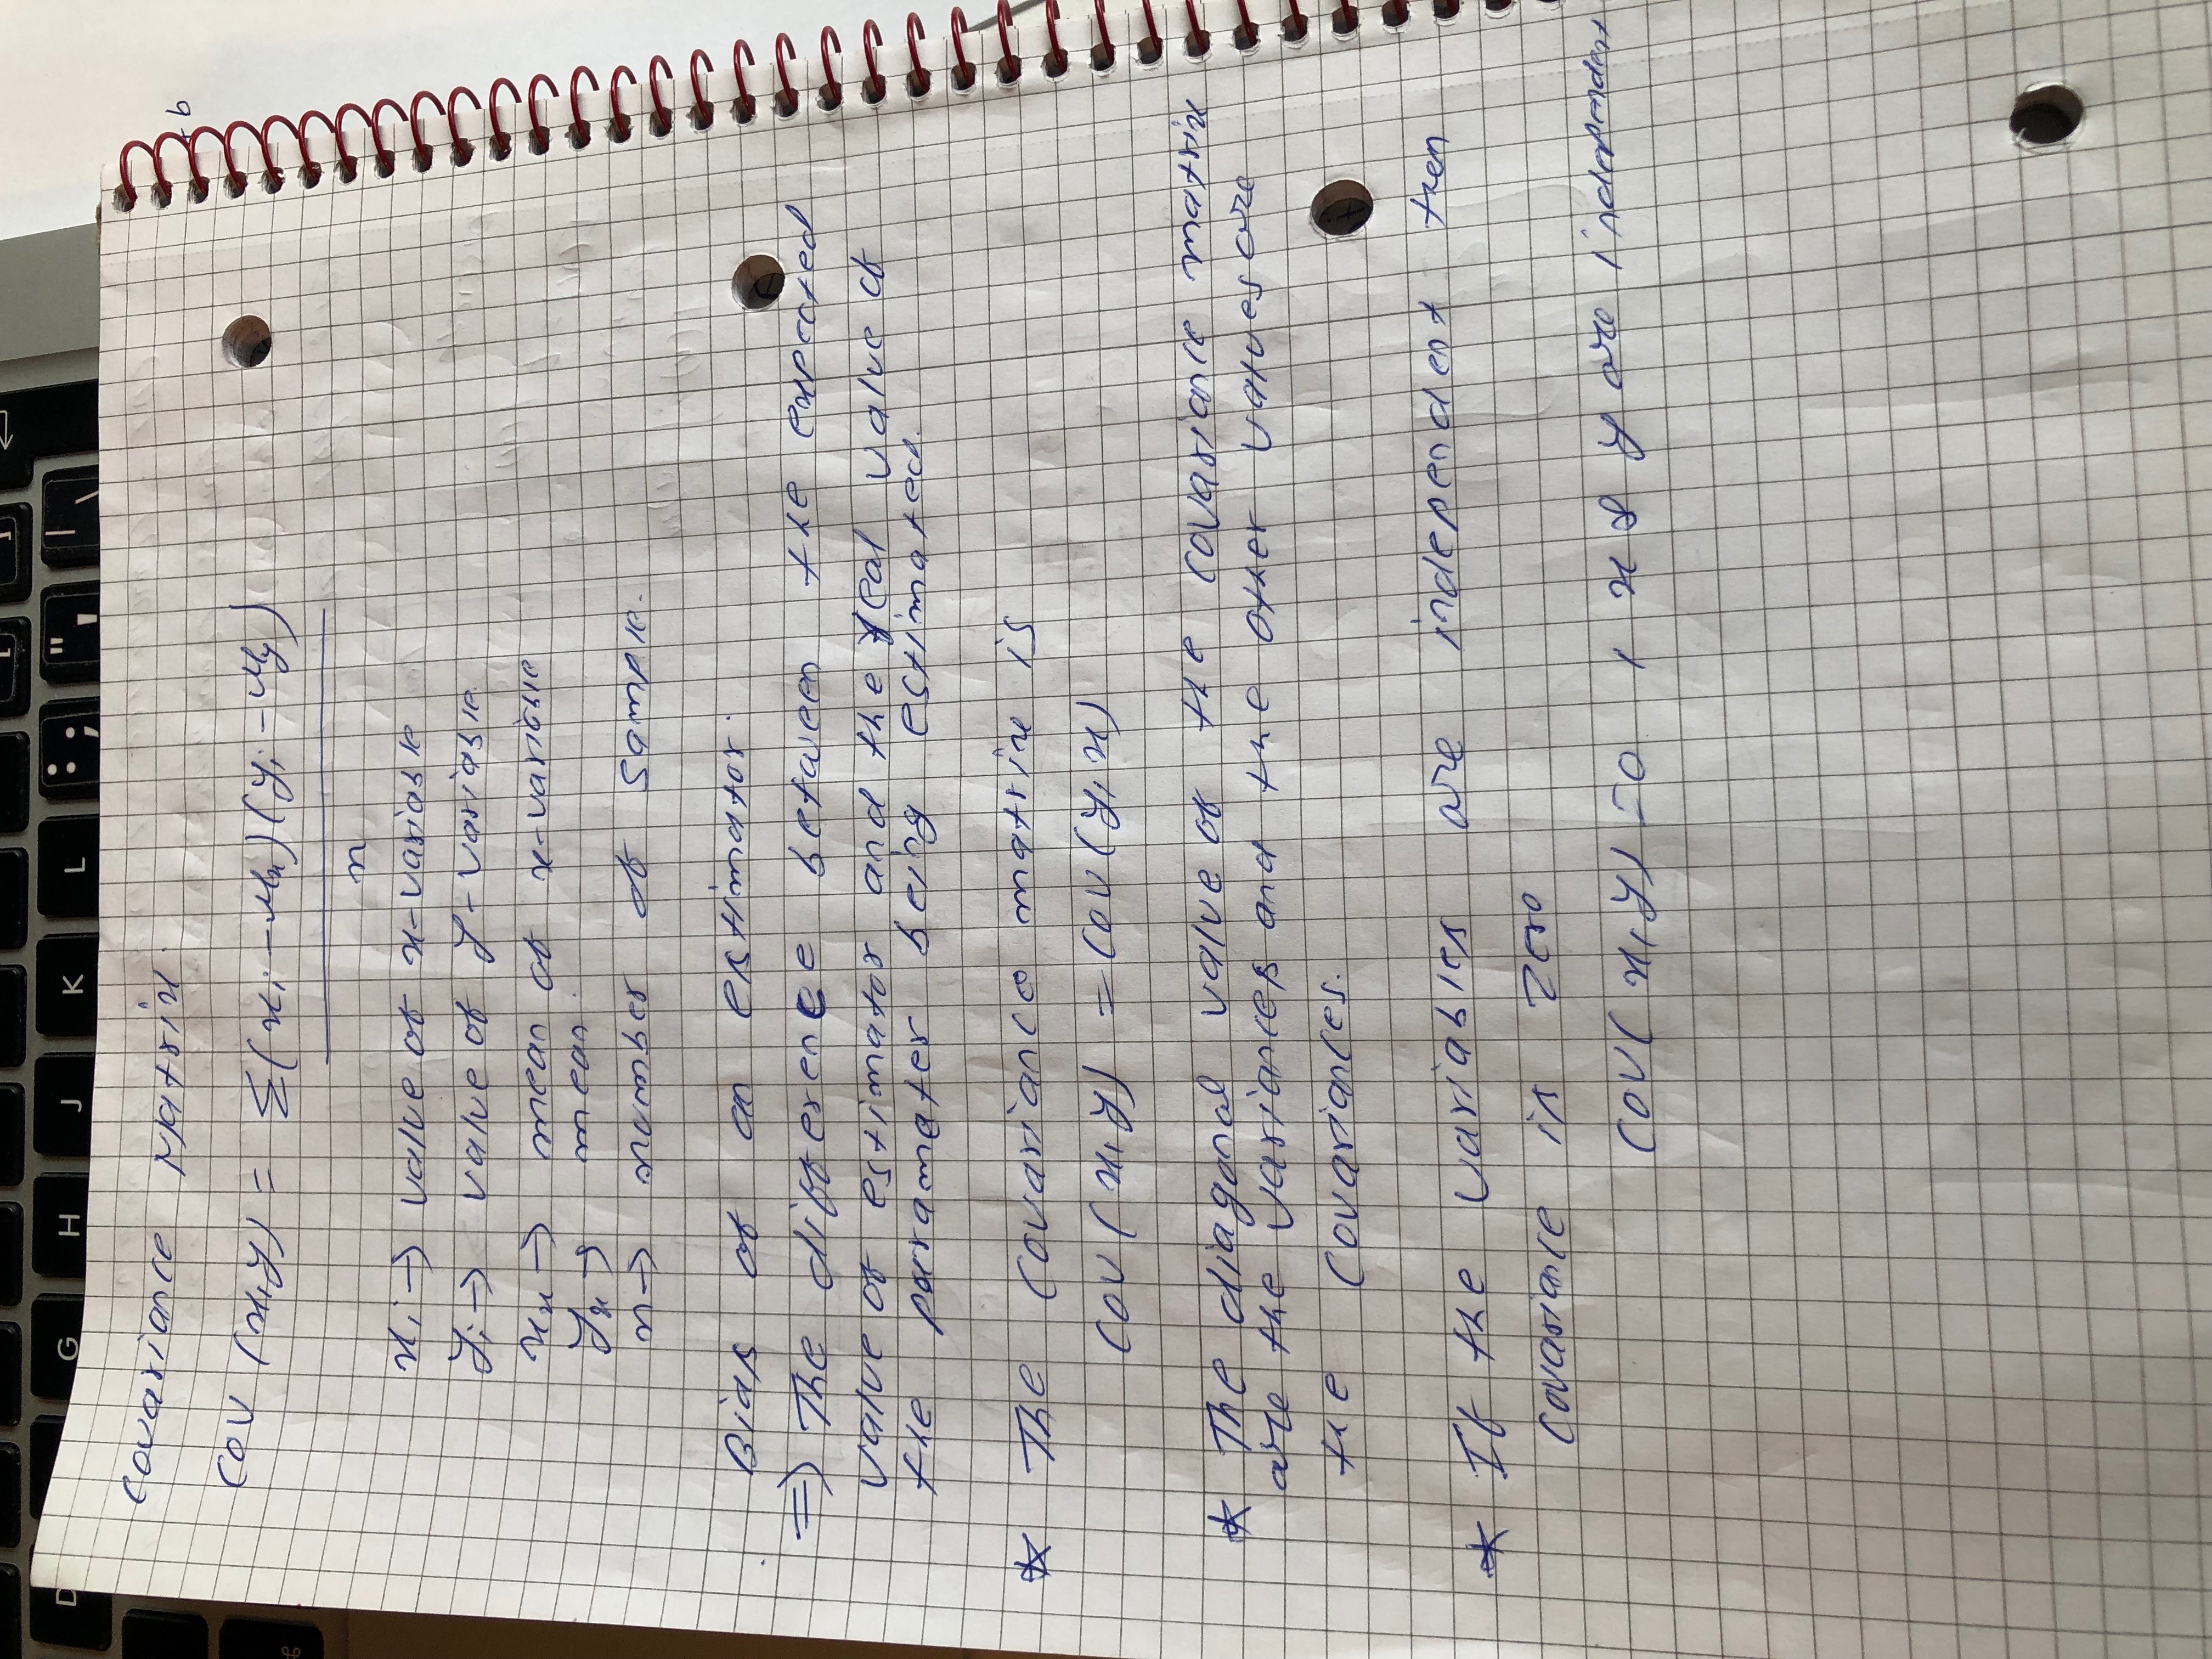 D G H J K L : ; " ' | \
Covariance Matrix
b
Cov (x,y) = Σ(xi - μx)(yi - μy)
n
xi → value of x-variable
yi → value of y-variable
xx → mean of x-variable
yx → mean
n → number of sample.
Bias of an estimator.
⇒ The difference between the expected
value of estimator and the real value of
the paramater being estimated.
* The covariance matrix is
cov(x,y) = cov(y,x)
* The diagonal value of the covariance matrix
are the variances and the other values are
the covariances.
* If the variables are independent then
covariance is zero
cov(x,y) = 0 , x & y are independent